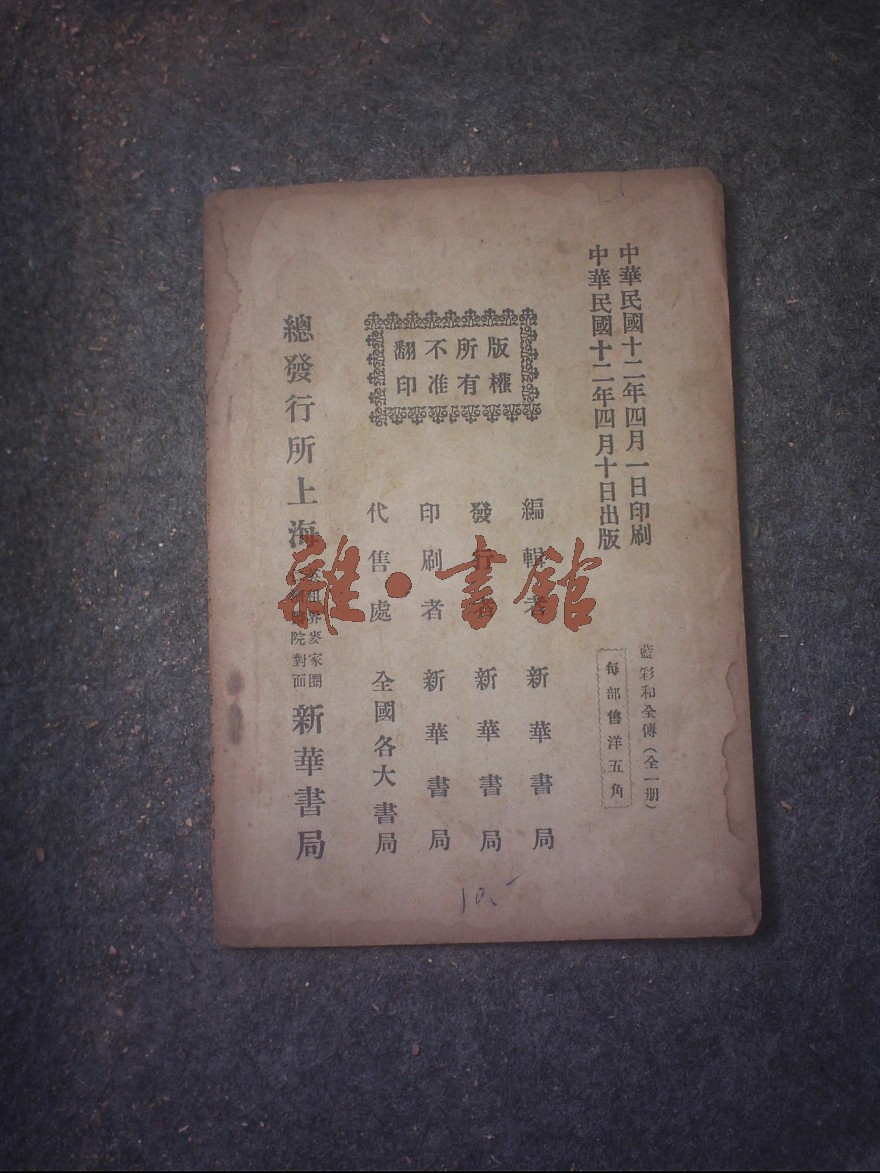 中華民國十二年四月一日印刷
中華民國十二年四月十日出版
藍彩和全傳(全一册)
每部售洋五角
版權
所有
不准
翻印
編輯者 新華書局
發行者 新華書局
印刷者 新華書局
代售處 全國各大書局
總發行所上海
租界麥家圈
院對面
新華書局
雜·書館